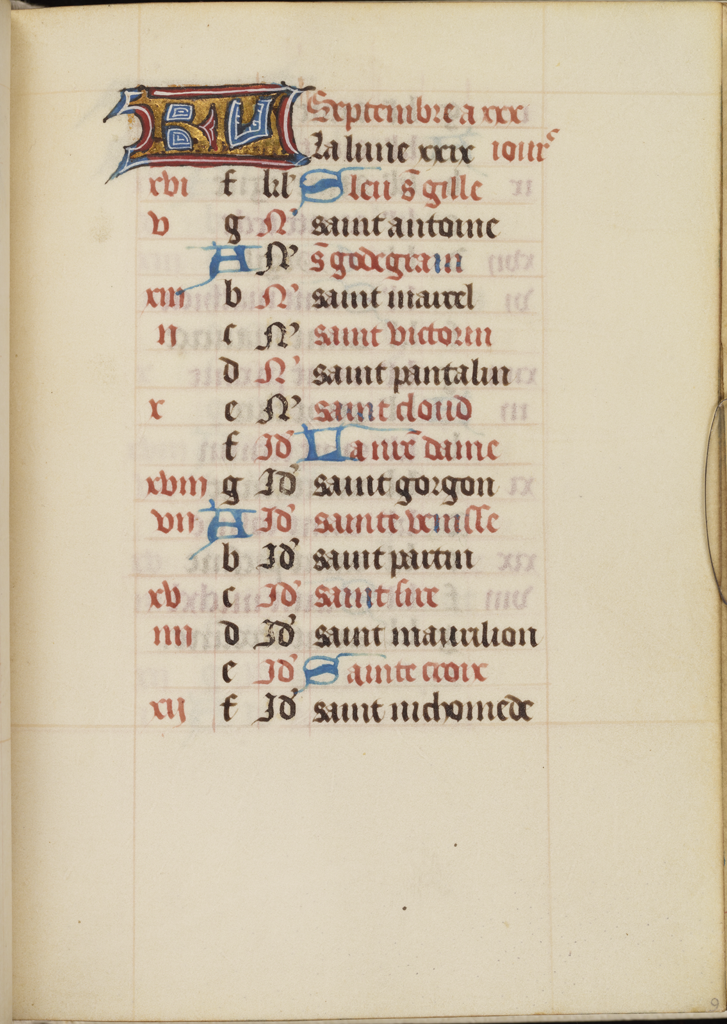 KL Septembre a xxx
La lune xxix iours
xvi f kl' S leu s̄ gille
v g N' saint antoine
A N' s̄ godegram
xiii b N' saint marcel
ii c N' saint victorin
d N' saint pantalin
x e N' saint cloud
f Id' La nr̄e dame
xviii g Id' saint gorgon
vii A Id' sainte venisse
b Id' saint partin
xv c Id' saint sire
iiii d Id' saint maurilion
e Id' Sainte croix
xij f Id' saint nichomede
9